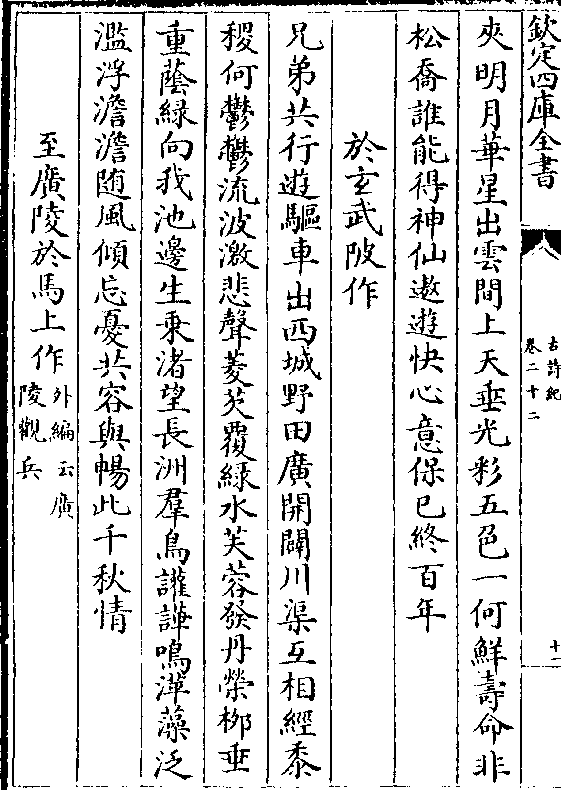 欽定四庫全書
古詩紀
卷二十二
十一
夾明月華星出雲間上天垂光彩五色一何鮮壽命非
松喬誰能得神仙遨遊快心意保已終百年
於玄武陂作
兄弟共行遊驅車出西城野田廣開闢川渠互相經黍
稷何鬱鬱流波激悲聲菱芡覆綠水芙蓉發丹榮栁垂
重蔭綠向我池邊生乘渚望長洲羣鳥讙譁鳴萍藻泛
濫浮澹澹随風傾忘憂共容與暢此千秋情
至廣陵於馬上作外編云廣陵觀兵